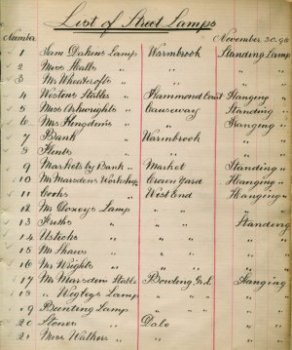 List of Street Lamps
Number November 30.98
1 Sam Dakens Lamp Warmbrook Standing Lamp
2 Moss Halls " " "
3 Mr Wheatcrofts " " "
4 Wostons Stables Hammond Court Standing "
5 Miss Arkwrights " Causeway Standing "
6 Mrs Kingdons " " Hanging "
7 Bank " Warmbrook "
8 Flints " " "
9 Markets by Bank " Market Standing "
10 Mr Marsdens Workshop Crown Yard Hanging "
11 Cooks " West End Hanging "
12 Mr Doxeys Lamp " "
13 Friths " " Standing
14 " " "
15 Mr Shaws " " "
16 Mr Wrights " " "
17 Mr Marsden Bowling Gn Hanging
18 " Wigleys Lamp " "
19 Bunting Lamp " "
20 Stones " Dale "
21 Miss Walkers " " "